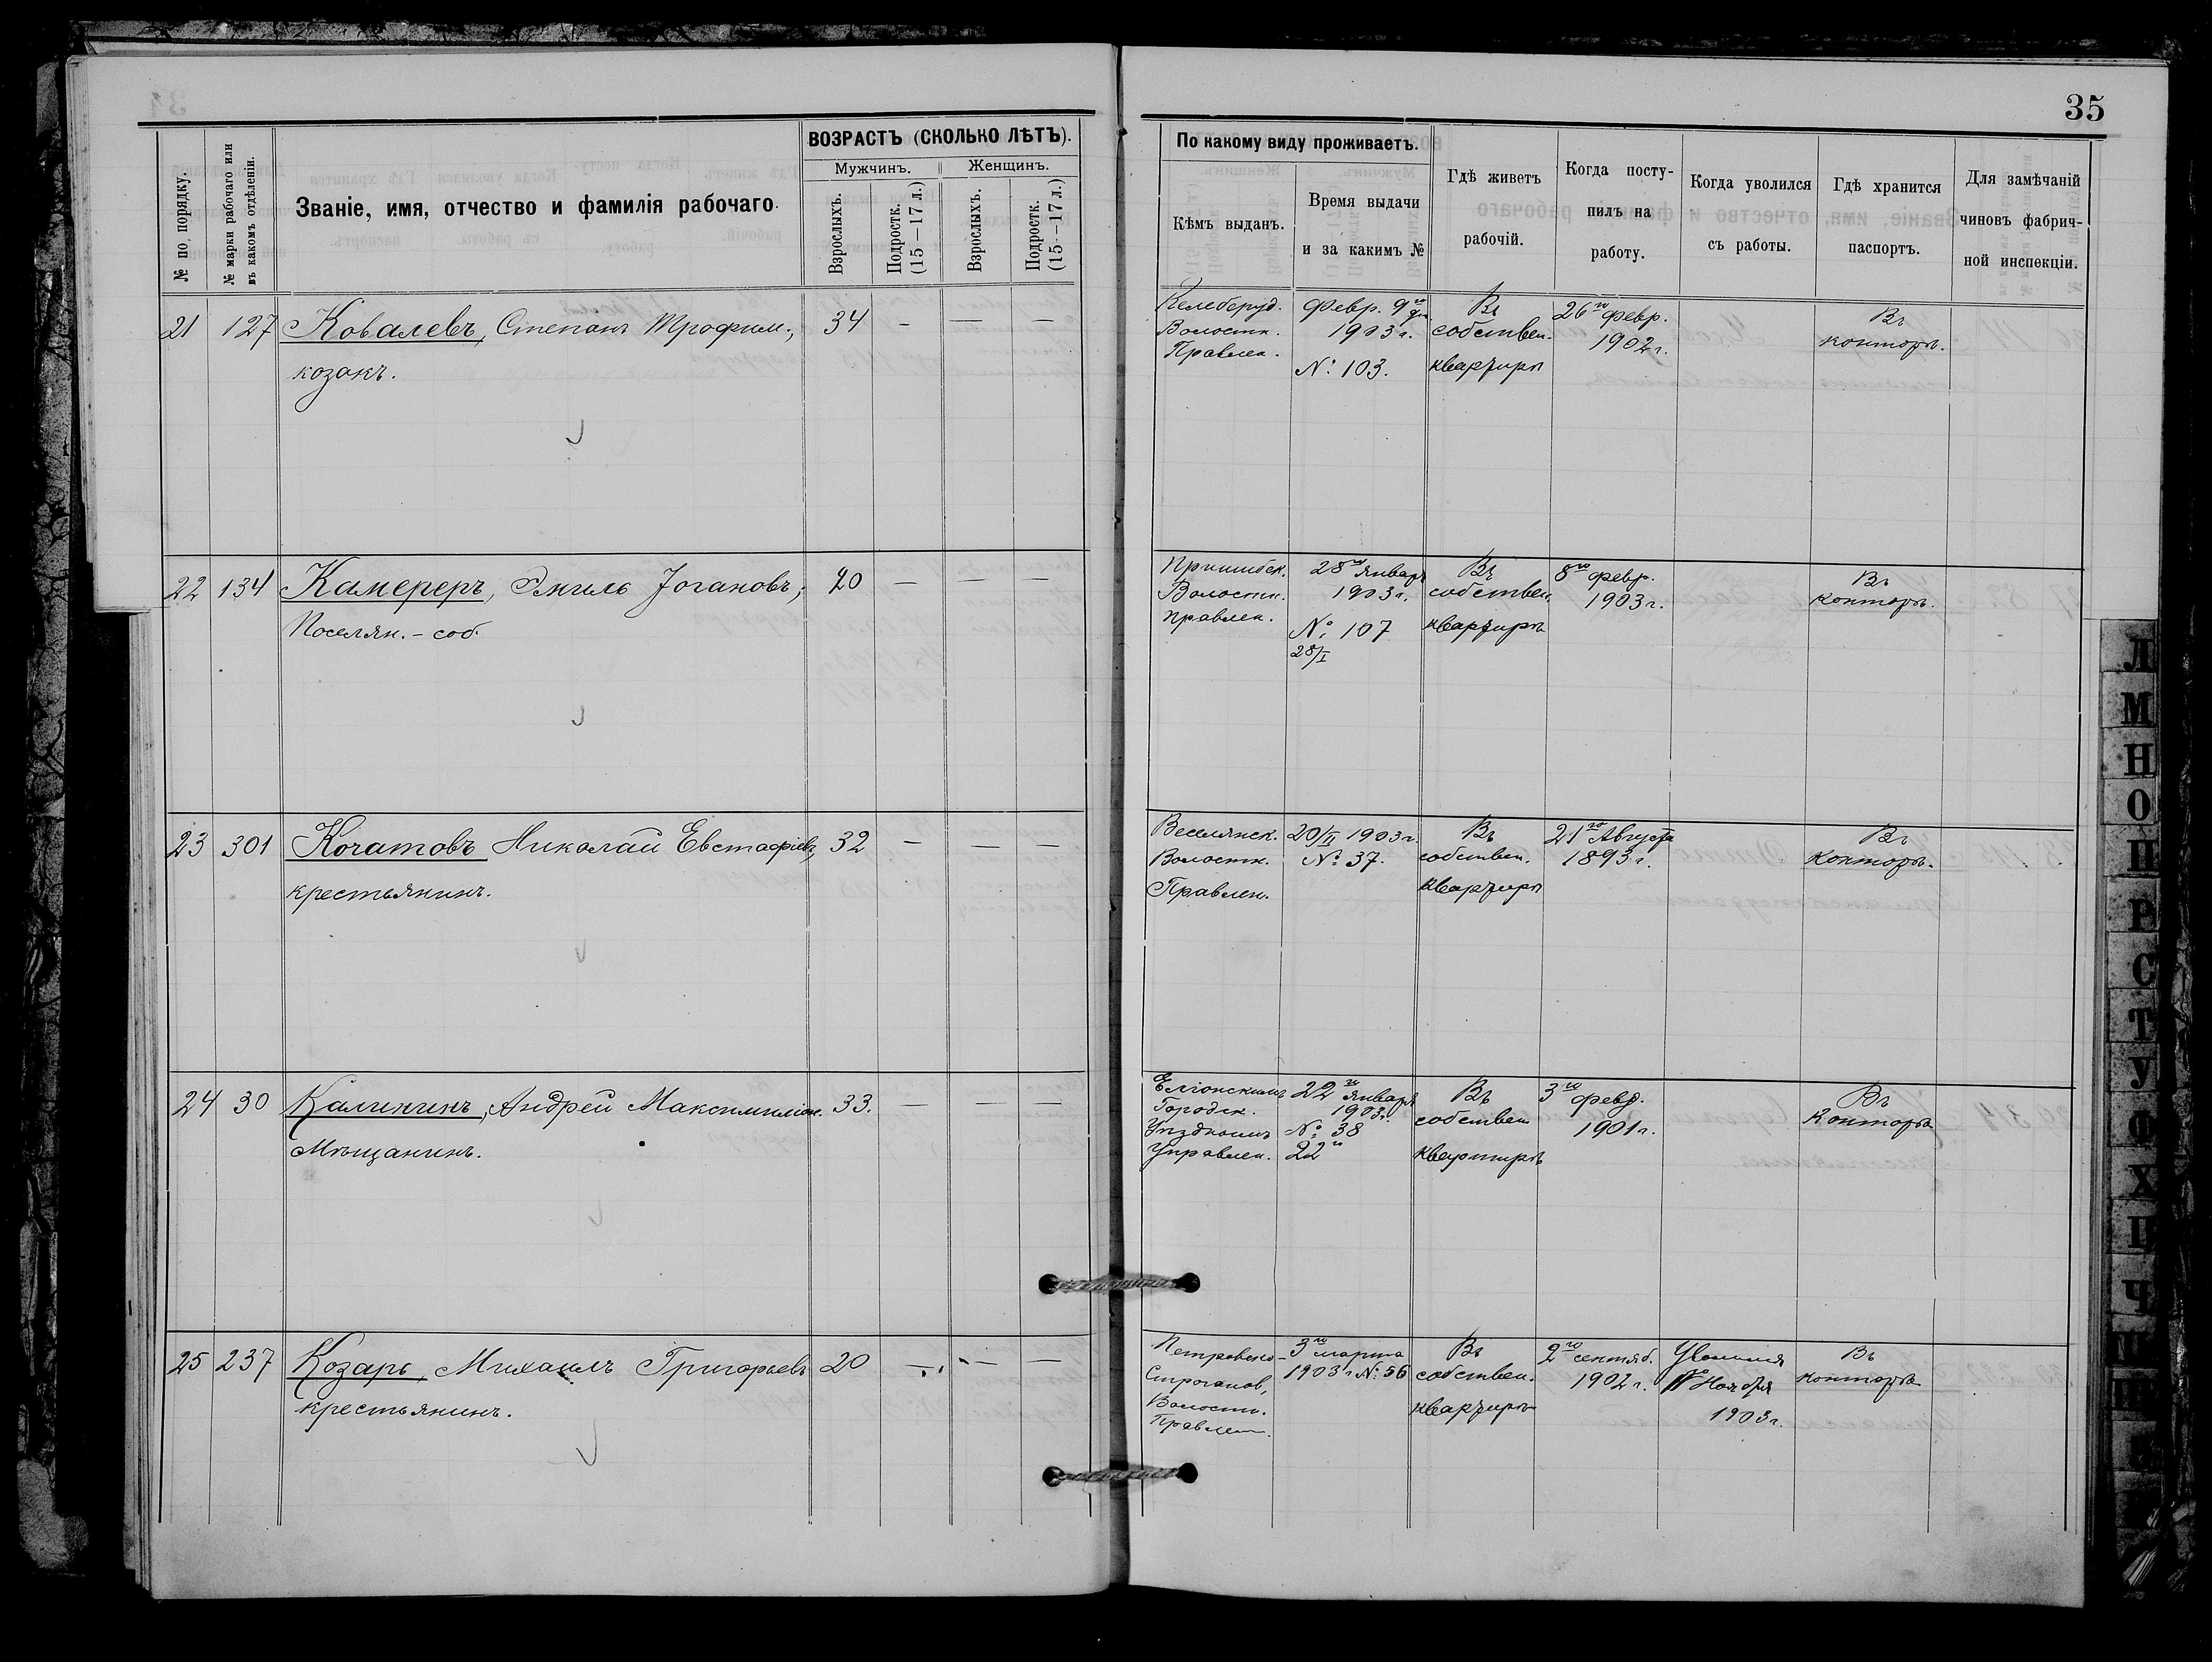 35
ВОЗРАСТЪ (СКОЛЬКО ЛѢТЪ).
Мужчинъ. Женщинъ.
№ по порядку.
№ марки рабочаго или
въ какомъ отдѣленіи.
Званіе, имя, отчество и фамилія рабочаго.
Взрослыхъ.
Подростк.
(15—17 л.)
Взрослыхъ.
Подростк.
(15—17 л.)
По какому виду проживаетъ.
Кѣмъ выданъ.
Время выдачи
и за какимъ №
Гдѣ живетъ
рабочій.
Когда посту-
пилъ на
работу.
Когда уволился
съ работы.
Гдѣ хранится
паспортъ.
Для замѣчаній
чиновъ фабрич-
ной инспекціи.
21 127 Ковалевъ, Степанъ Трофим.; 34 — — —
козакъ.
Келеберд.
Волостн.
Правлен.
Февр. 9го
1903 г.
№ 103.
Въ
собствен.
квартирѣ
26го февр.
1902 г.
Въ
конторѣ.
22 134 Камереръ, Эмиль Іогановъ; 20 — — —
Поселян. - соб.
Пришибск.
Волостн.
правлен.
28го Январ
1903 г.
№ 107
28/I
Въ
собствен.
квартирѣ
8го февр.
1903 г.
Въ
конторѣ.
23 301 Кочатовъ Николай Евстафіев, 32 — — —
крестьянинъ.
Веселянск.
Волостн.
Правлен.
20/II 1903 г.
№ 37.
Въ
собствен.
квартирѣ
21го Августа
1893 г.
Въ
Конторѣ.
24 30 Калининъ, Андрей Максимиліон. 33. — — —
Мѣщанинъ.
Городск.
Управлен.
22го Января
1903 г.
№ 38
22го
Въ
собствен
квартирѣ
3го февр.
1901 г.
Въ
Конторѣ
25 237 Козарь, Михаилъ Григорьевъ 20 — — —
крестьянинъ.
Петровско-
Строганов,
Волостн.
Правлен.
3го марта
1903 г № 56
Въ
собствен.
квартирѣ
2го сентяб.
1902 г.
Уволился
Ноября
1903 г.
Въ
конторѣ
Л
М
Н
О
П
Р
С
Т
У
Ф
Х
Ц
Ч